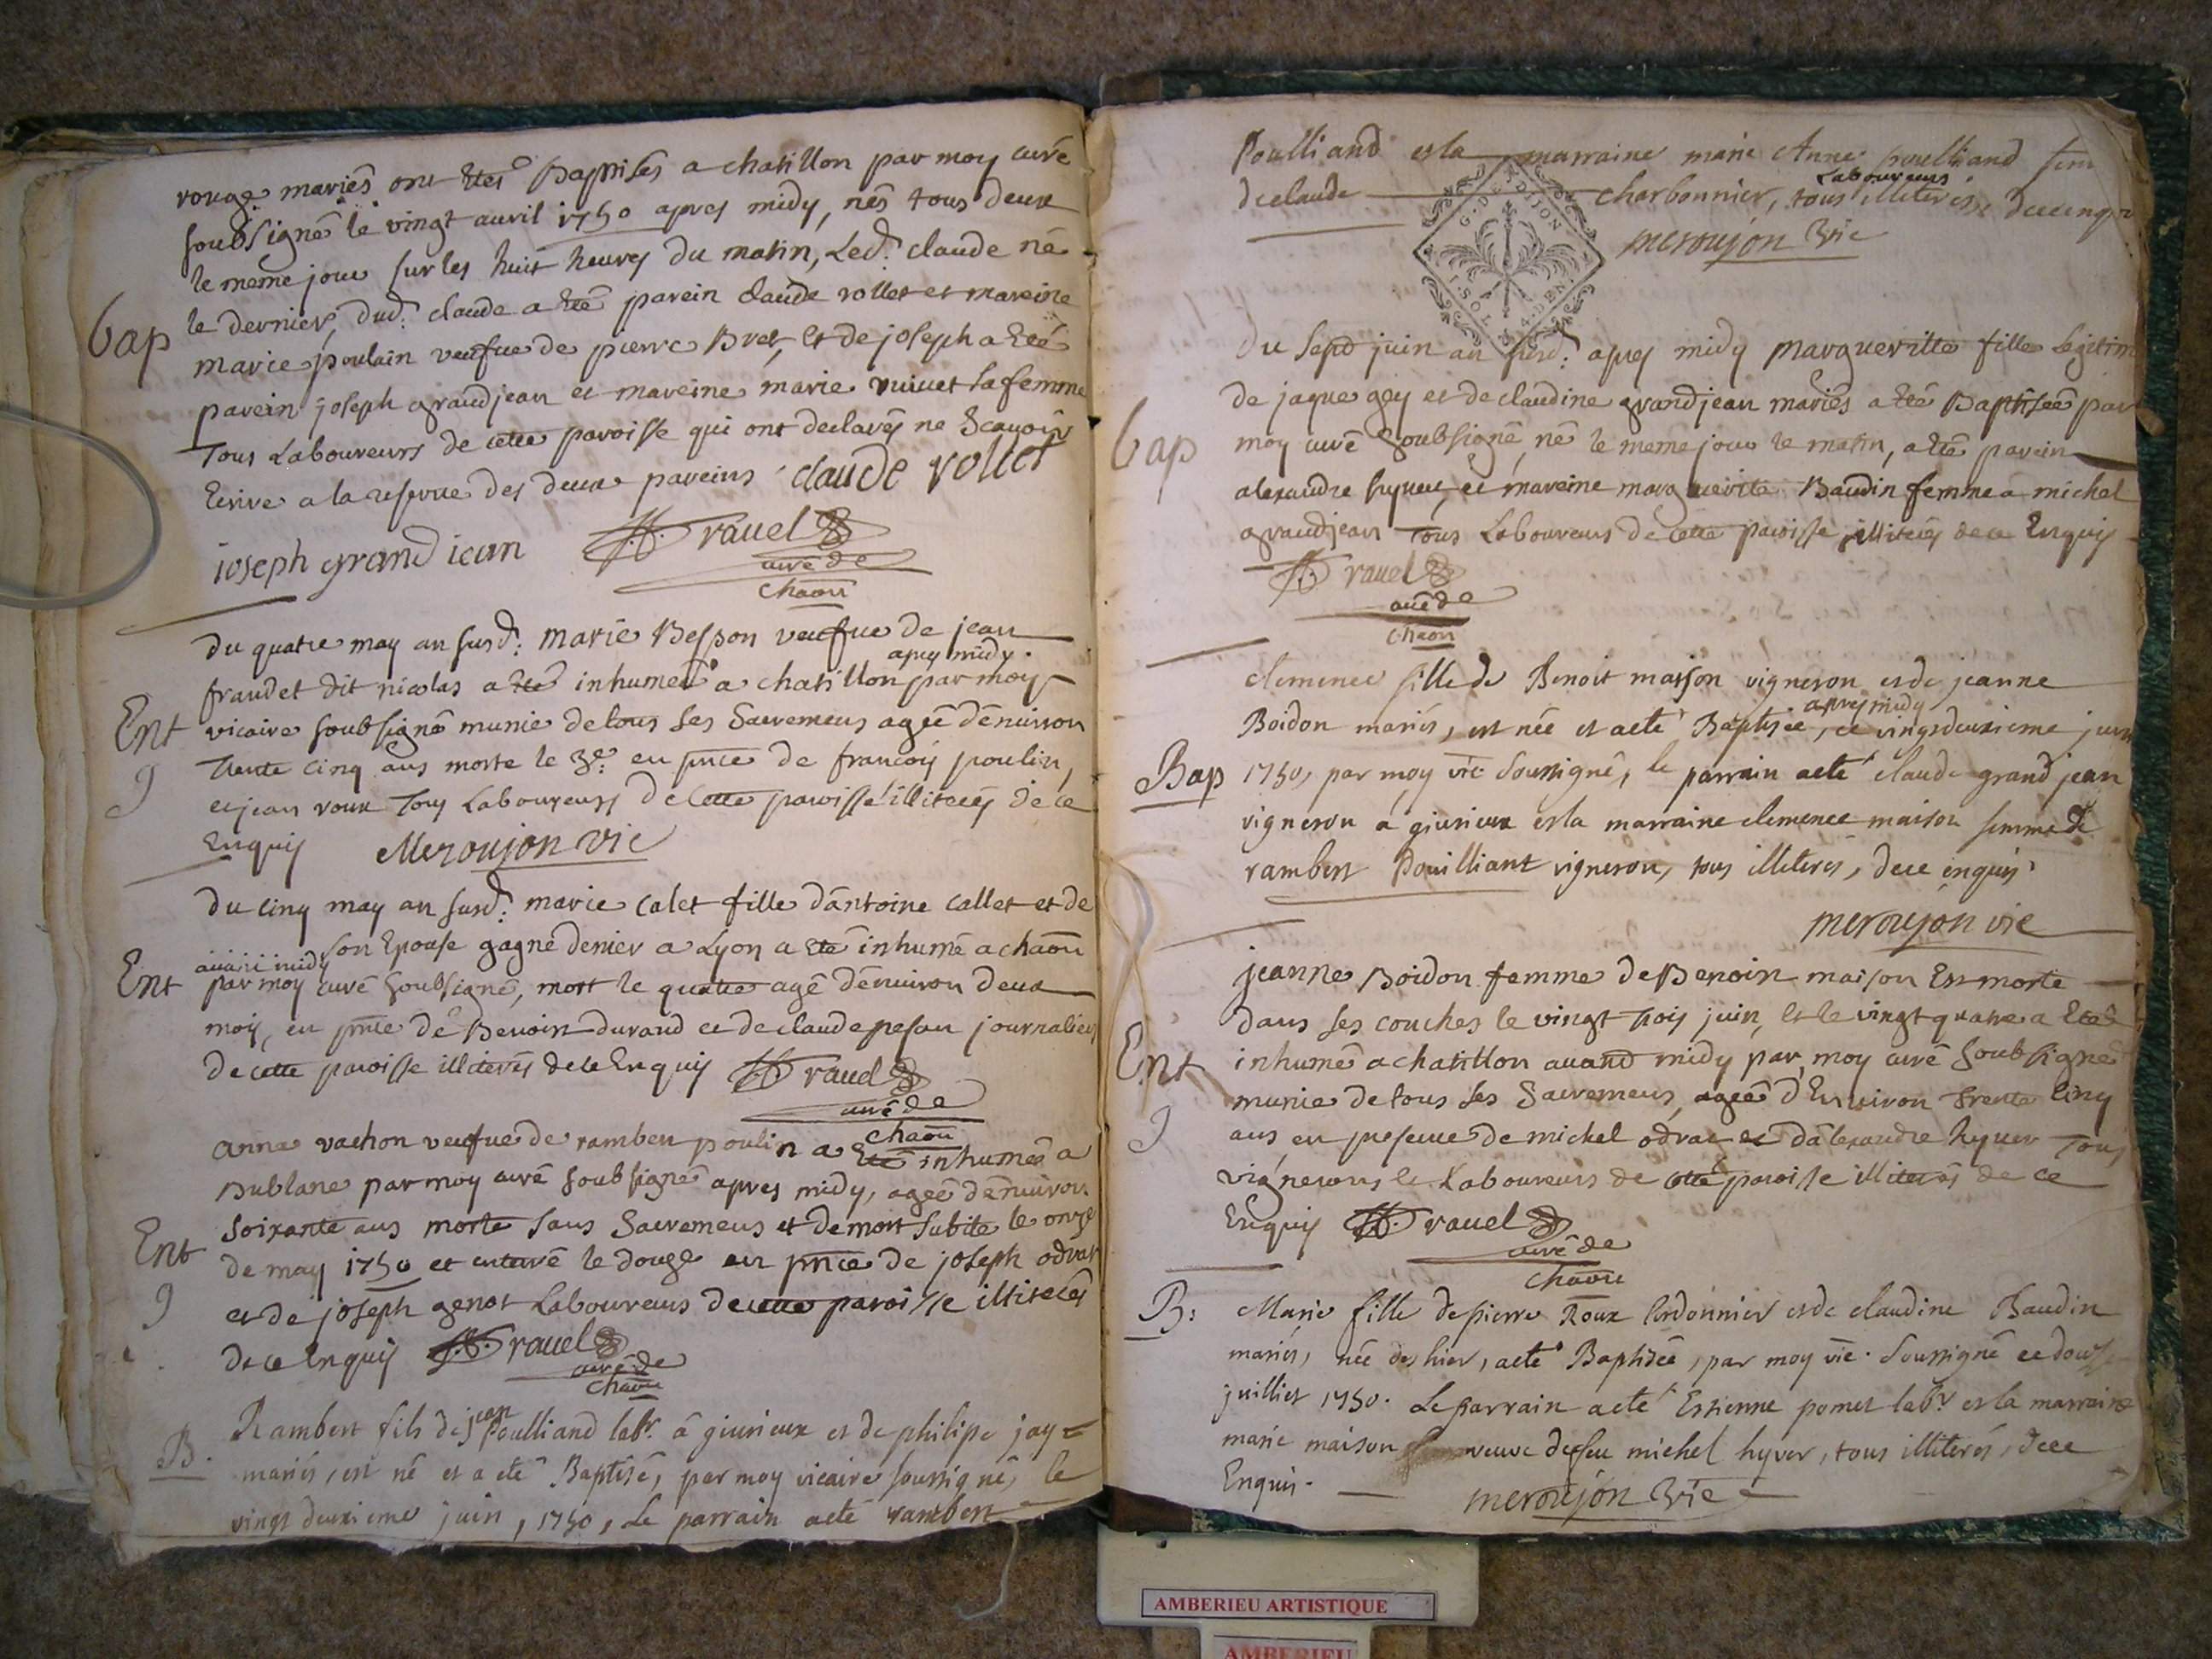 rouge mariés ont Etés Baptisés a chatillon par moy curé
soubsigné le vingt auvril 1750 apres midy, nés tous deux
le meme jour sur les huit heures du matin, Led: claude né
le dernier, dud: claude a Eté parein claude rollet et mareine
bap
marie poulain veufue de pierre Bret, et de joseph a Eté
parein joseph grandjean et mareine marie vuiuet sa femme
Tous Laboureurs de cette paroisse qui ont declarés ne Scauoir
Ecrire a la reserue des deux pareins claude rollet
joseph grand jean rauel
curé de
chaon
du quatre may an susd: marie Besson veufue de jean
apres midy
fraudet dit nicolas a Eté inhumeé a chatillon par moy
Ent
vicaire soubsigné munie de tous ses Sacremens ageé d'enuiron
9
Trente cinq ans morte le 3e: en pnce de francois poulin,
et jean roux Tous Laboureurs de Cette paroisse illiterés de ce
Enquis Meroujon vic
du cinq may an susd: marie calet fille d'antoine callet et de
son Epouse gagne denier a Lyon a Eté inhumé a chaon
auant midy
Ent
par moy curé soubsigné, mort le quatre agé d'enuiron deux
mois, en pnce de Benoist durand et de claude pesan journaliers
de cette paroisse illiterés de ce Enquis rauel
curé de
chaon
anne vachon veufue de rambert poulin a Eté inhumeé a
Bublane par moy curé soubsigné apres midy, ageé d'enuiron
soixante ans morte sans Sacremens et de mort subite le onze
Ent
de may 1750 et enteré le douze en pnce de joseph odrat
9
et de joseph genot Laboureurs de cette paroisse illiterés
de ce Enquis rauel
curé de
chaon
jean
Rambert fils de Poulliand labr. á giurieux et de philipe jay
B.
mariés, est né et a eté Baptisé, par moy vicaire soussigné, le
vingt deuxieme juin, 1750, Le parrain a eté rambert
Poulliand et la marraine marie Anne poulliand fem
Laboureurs
de claude charbonnier, tous illiterés, de ce enquis
G. DE DIJON
1. SOL 4. DEN
meroujon vic
du Sept juin an susd: apres midy margueritte fille Legitim
de jaque gey et de claudine grandjean mariés a eté Baptiseé par
bap
moy curé Soubsigné, né le meme jour le matin, a Eté parein
alexandre hyuer, et mareine marguerite Baudin femme a michel
grandjean tous Laboureurs de Cette paroisse illiterés de ce Enquis
rauel
curé de
chaon
clemence fille de Benoit maison vigneron et de jeanne
apres midy
Boidon mariés, est née et a eté Baptisée, ce vingtdeuxieme juin
Bap
1750, par moy vic soussigné, le parrain a eté claude grand jean
vigneron á giurieux et la marraine clemence maison femme de
rambert Pouilliant vigneron, tous illiterés, de ce enquis
meroujon vic
jeanne Boidon femme de Benoin maison Est morte
dans ses couches le vingt trois juin, et le vingt quatre a Eteé
Ent
inhumé a chatillon auand midy par moy curé Soubsigné
munie de tous ses Sacremens, ageé d'Enuiron trente Cinq
9
ans, en presence de michel odrat et d'alexandre hyuer Tous
vignerons et Laboureurs de cette paroisse illiterés de ce
Enquis rauel
curé de
chaon
B:
Marie fille de pierre Roux Cordonnier et de claudine Baudin
mariés, née dès hier, a eté Baptisée, par moy vic. soussigné ce douse
juilliet 1750. Le parrain a eté Estienne pomet labr. et la marraine
marie maison veuve de feu michel hyver, tous illiterés, de ce
Enquis. meroujon vic
AMBERIEU ARTISTIQUE
AMBERIEU